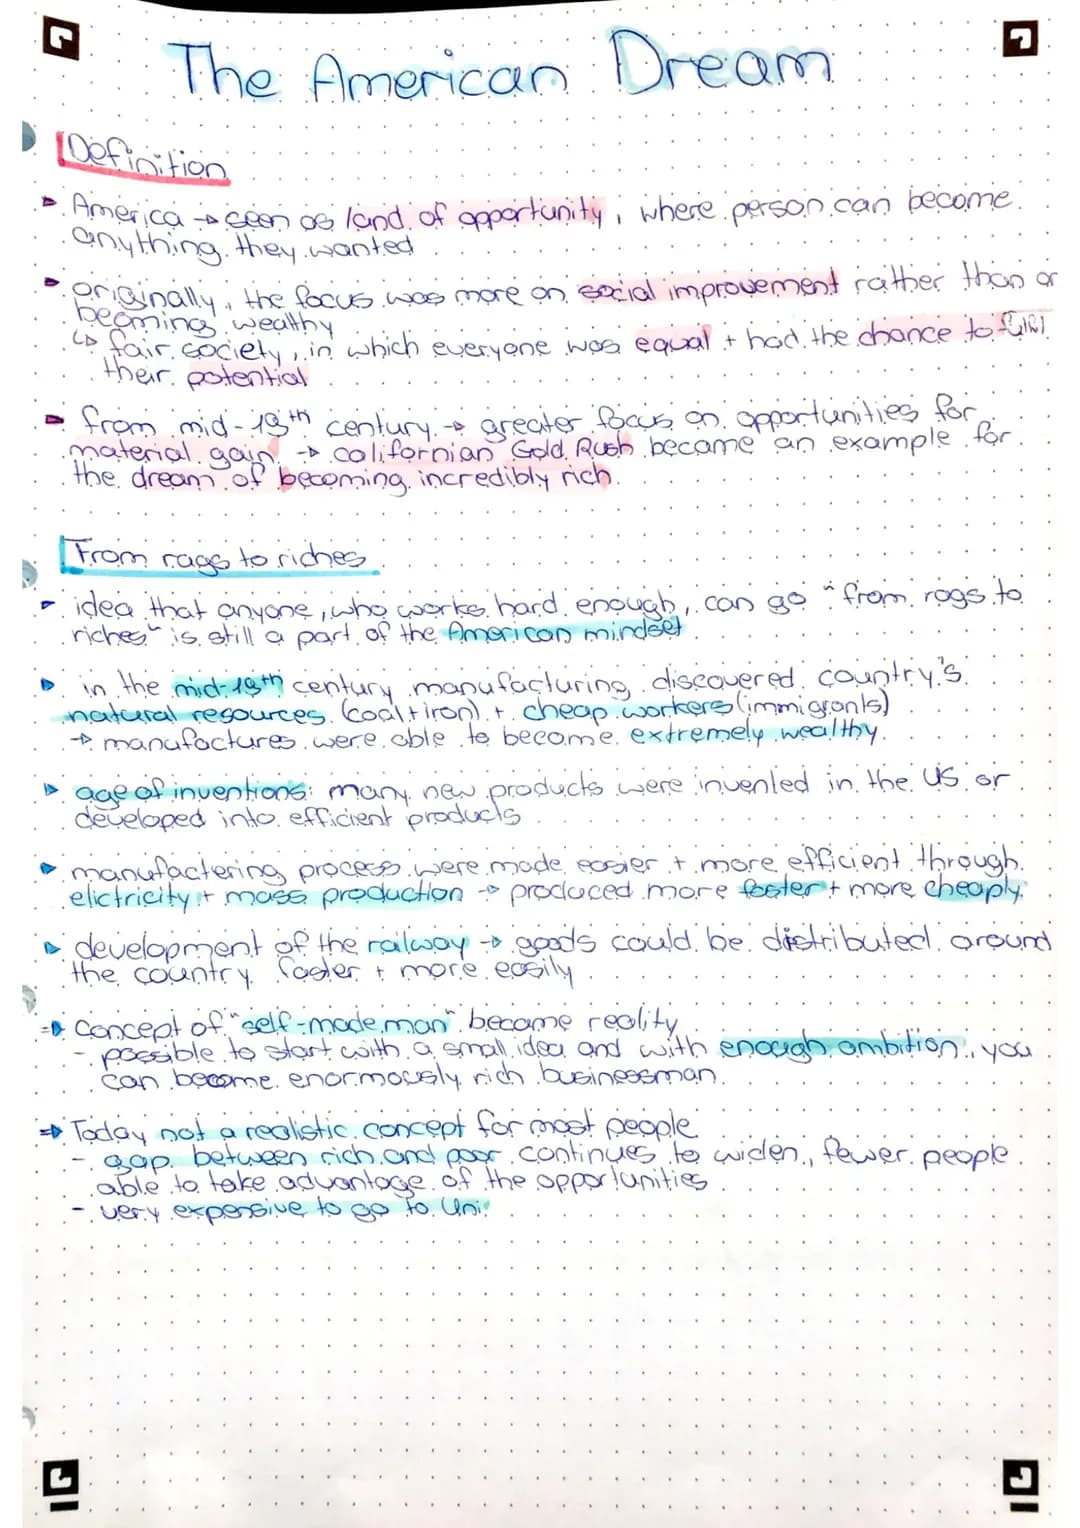 The American Dream
Definition
America → seen as land of opportunity, where person can become
anything they wanted
originally, the focus was more on social improvement rather than on
becoming wealthy
↳ fair society, in which everyone was equal + had the chance to fulfill
their potential
from mid-19th century → greater focus on opportunities for
material gain → californian Gold Rush became an example for
the dream of becoming incredibly rich
From rags to riches
idea that anyone, who works hard enough, can go "from rags to
riches" is still a part of the American mindset
in the mid-19th century manufacturing discovered country's
natural resources (coal+iron) + cheap workers (immigrants)
→ manufactures were able to become extremely wealthy
age of inventions: many new products were invented in the US or
developed into efficient products
manufactering process were made easier + more efficient through
elictricity + mass production → produced more faster + more cheaply
development of the railway → goods could be distributed around
the country faster + more easily
⇒ Concept of "self-made man" became reality
- possible to start with a small idea and with enough ambition, you
can become enormously rich businessman
⇒ Today not a realistic concept for most people
- gap between rich and poor continues to widen, fewer people
able to take advantage of the opportunities
- very expensive to go to Uni